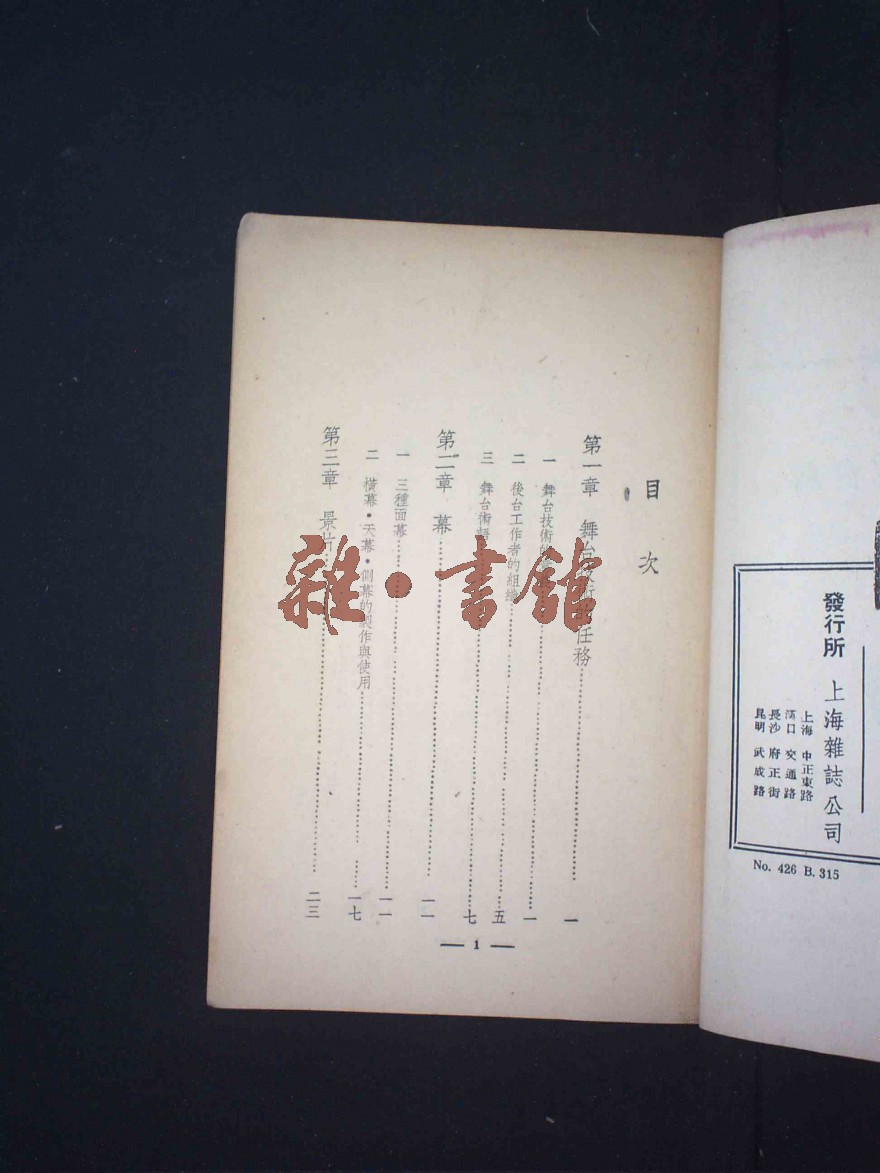 發行所 上海雜誌公司
上海 中正東路
漢口 交通路
長沙 府正街
昆明 武成路
No. 426 B. 315
目次
第一章 舞台技術的任務 一
一 舞台技術的 一
二 後台工作者的組織 五
三 舞台術語 七
第二章 幕 一一
一 三種面幕 一一
二 橫幕·天幕·側幕的製作與使用 一七
第三章 景片 二三
— 1 —
雜·書館